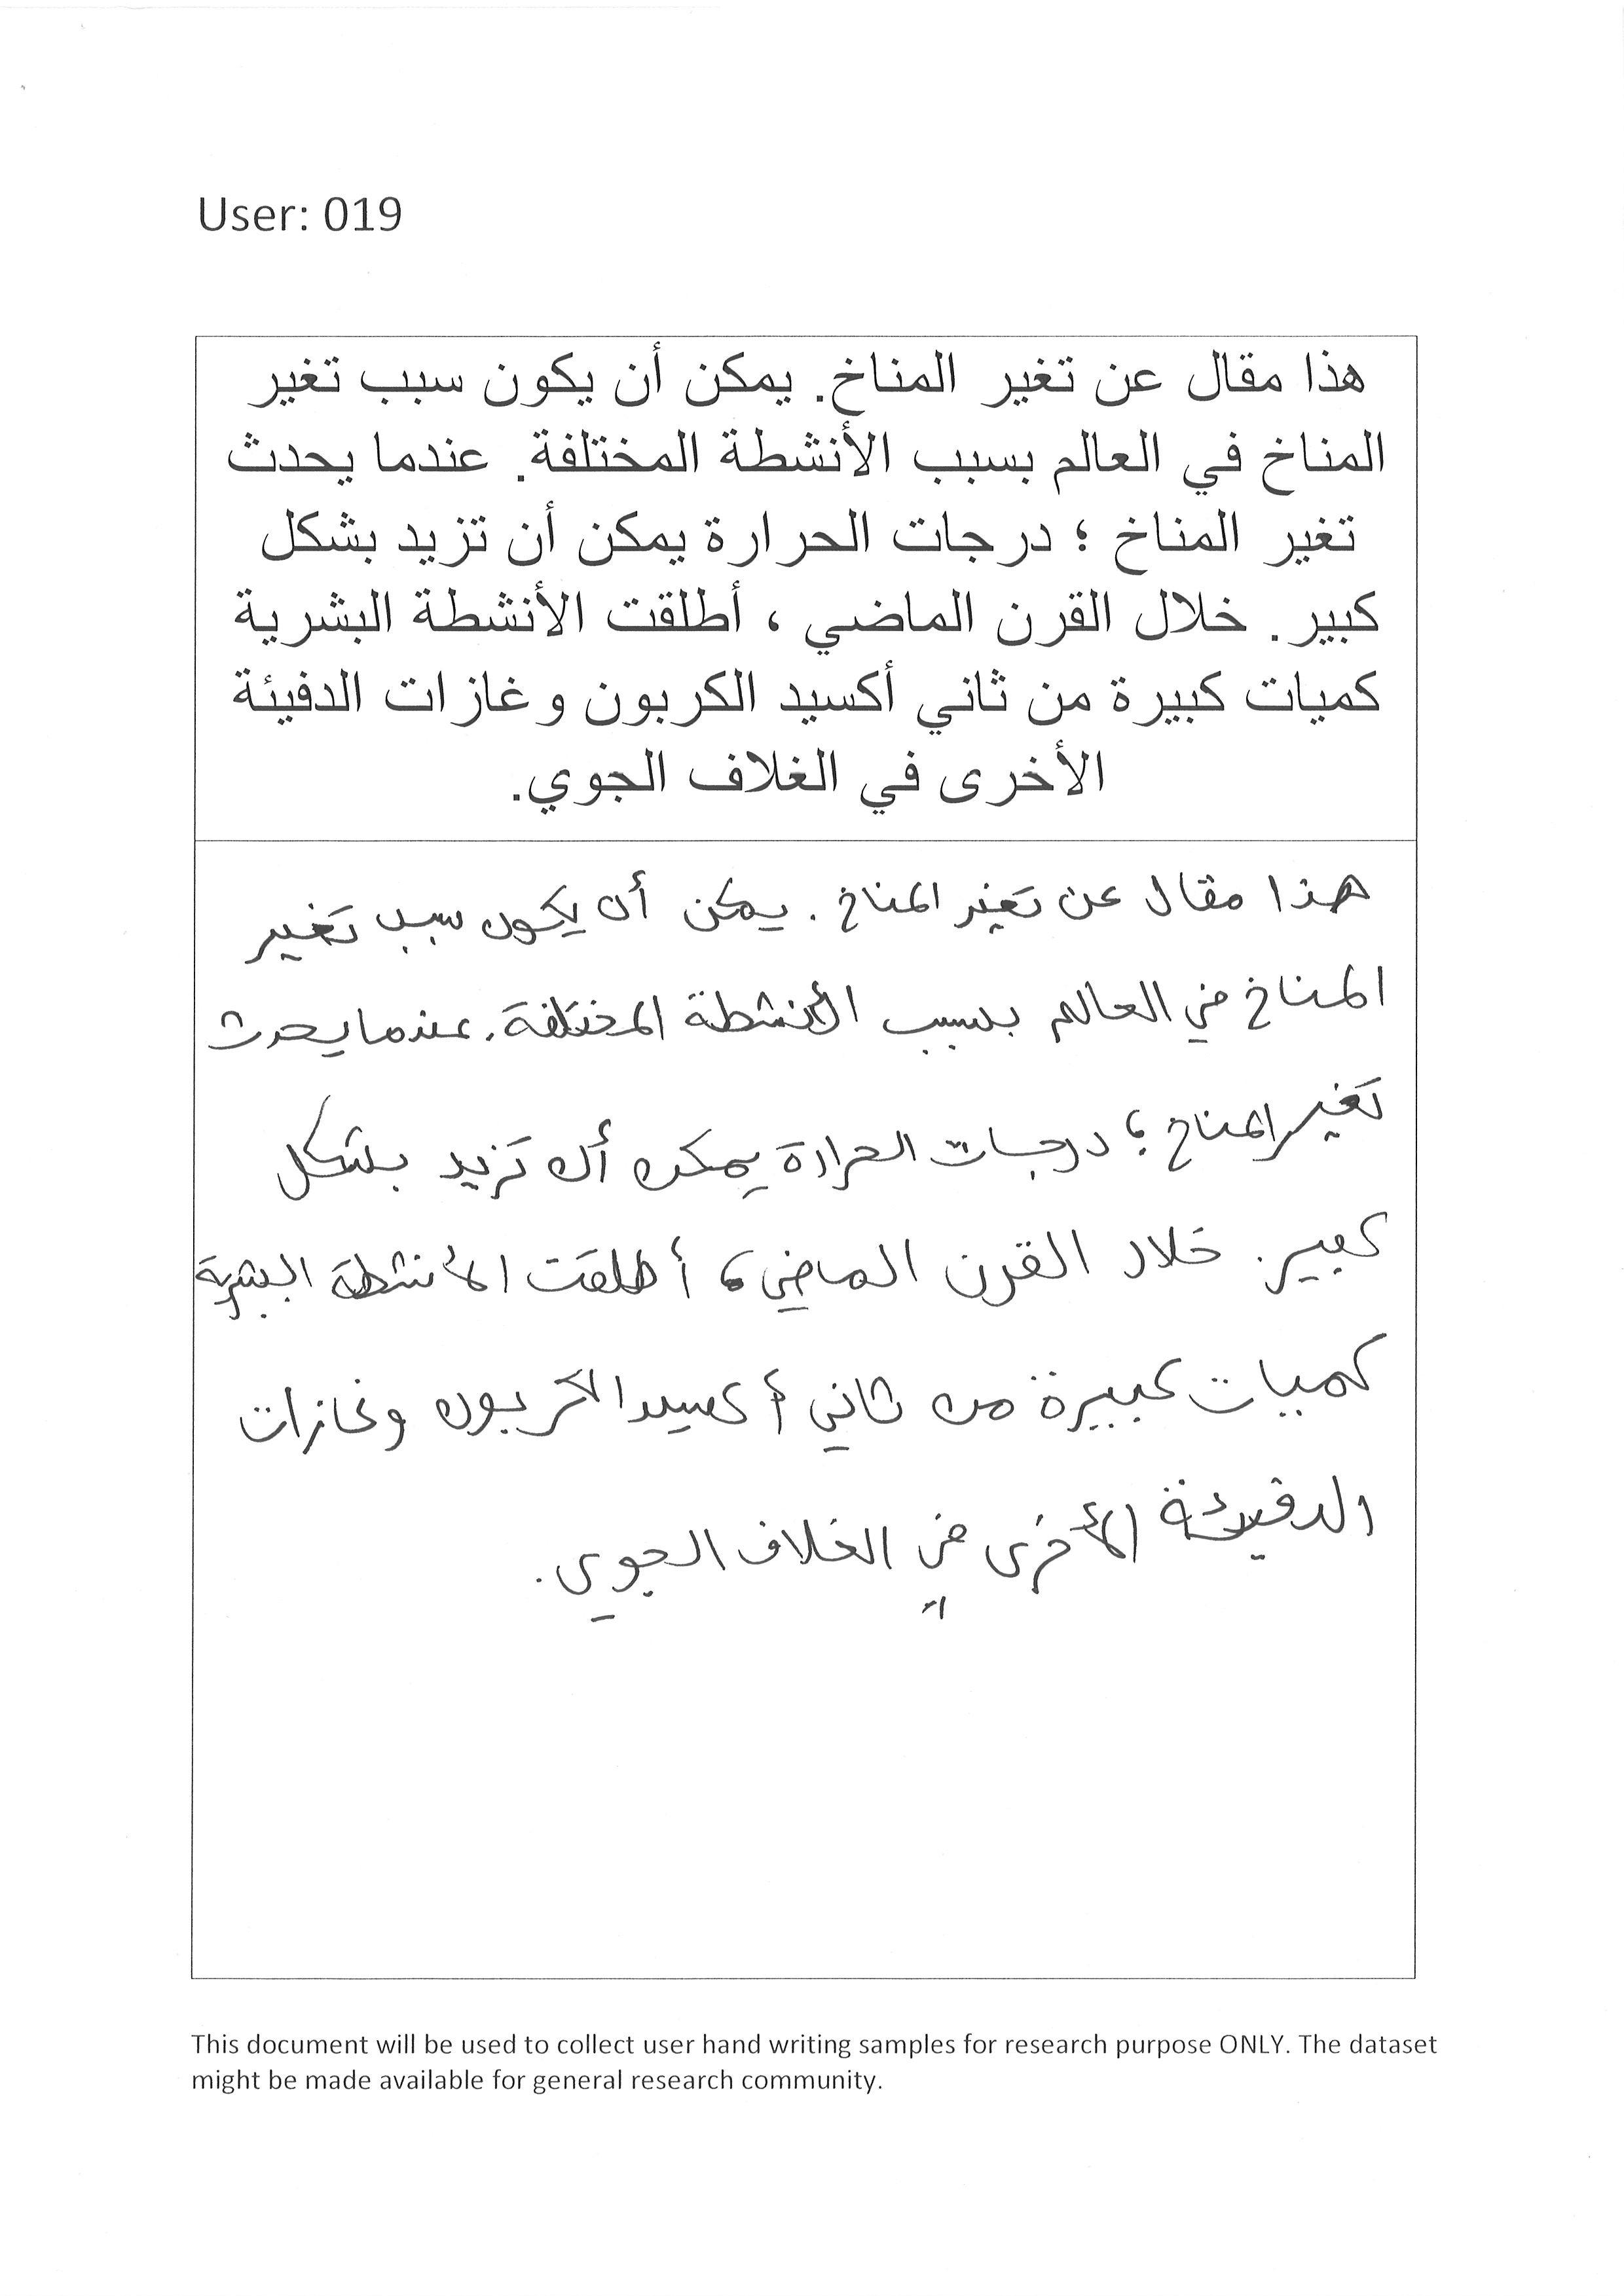 User: 019
هذا مقال عن تغير المناخ. يمكن أن يكون سبب تغير
المناخ في العالم بسبب الأنشطة المختلفة. عندما يحدث
تغير المناخ ؛ درجات الحرارة يمكن أن تزيد بشكل
كبير. خلال القرن الماضي ، أطلقت الأنشطة البشرية
كميات كبيرة من ثاني أكسيد الكربون وغازات الدفيئة
الأخرى في الغلاف الجوي.
هذا مقال عن تغير المناخ. يمكن أن يكون سبب تغير
المناخ في العالم بسبب الأنشطة المختلفة. عندما يحدث
تغير المناخ ؛ درجات الحرارة يمكن أن تزيد بشكل
كبير. خلال القرن الماضي ، أطلقت الأنشطة البشرية
كميات كبيرة من ثاني أكسيد الكربون وغازات
الدفيئة الأخرى في الغلاف الجوي.
This document will be used to collect user hand writing samples for research purpose ONLY. The dataset
might be made available for general research community.